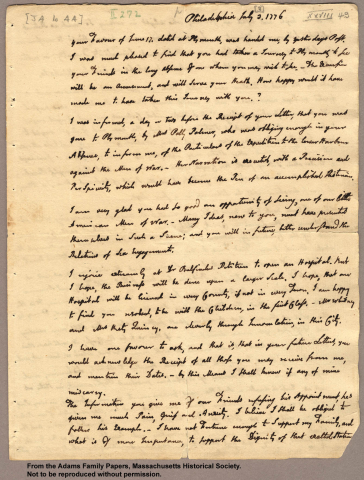 [J4 L 44] II 272 XXVIII 43
Philadelphia July 3, 1776
your Favour of June 17. dated at Plymouth, was handed me, by Yesterdays Post.
I was much pleased to find that you had taken a Journey to Plymouth, to see
your Friends in the long Absence of one whom you may wish to see. The Excursion
will be an Amusement, and will serve your Health. How happy would it have
made me to have taken this Journey with you?
I was informed, a day or two before the Receipt of your Letter, that you was
gone to Plymouth, by Mrs. Polly Palmer, who was obliging enough in your
Absence, to inform me, of the Particulars of the Expedition to the lower Harbour
against the Men of War. Her Narration is executed, with a Precision and
Perspicuity, which would have become the Pen of an accomplished Historian.
I am very glad you had so good an opportunity of seeing one of our little
American Men of War. Many Ideas, new to you, must have presented
themselves in such a Scene; and you will in future, better understand the
Relations of Sea Engagements.
I rejoice extreamly at Dr. Bulfinches Petition to open an Hospital. But
I hope, the Business will be done upon a larger Scale. I hope, that one
Hospital will be licensed in every County, if not in every Town. I am happy
to find you resolved, to be with the Children, in the first Class. Mr. Whitney
and Mrs. Katy Quincy, are cleverly through Innoculation, in this City.
I have one favour to ask, and that is, that in your future Letters, you
would acknowledge the Receipt of all those you may receive from me,
and mention their Dates. By this Means I shall know if any of mine
miscarry.
The Information you give me of our Friends refusing his Appointment, has
given me much Pain, Grief and Anxiety. I believe I shall be obliged to
follow his Example. I have not Fortune enough to support my Family, and
what is of more Importance, to support the Dignity of that exalted Station.
From the Adams Family Papers, Massachusetts Historical Society.
Not to be reproduced without permission.